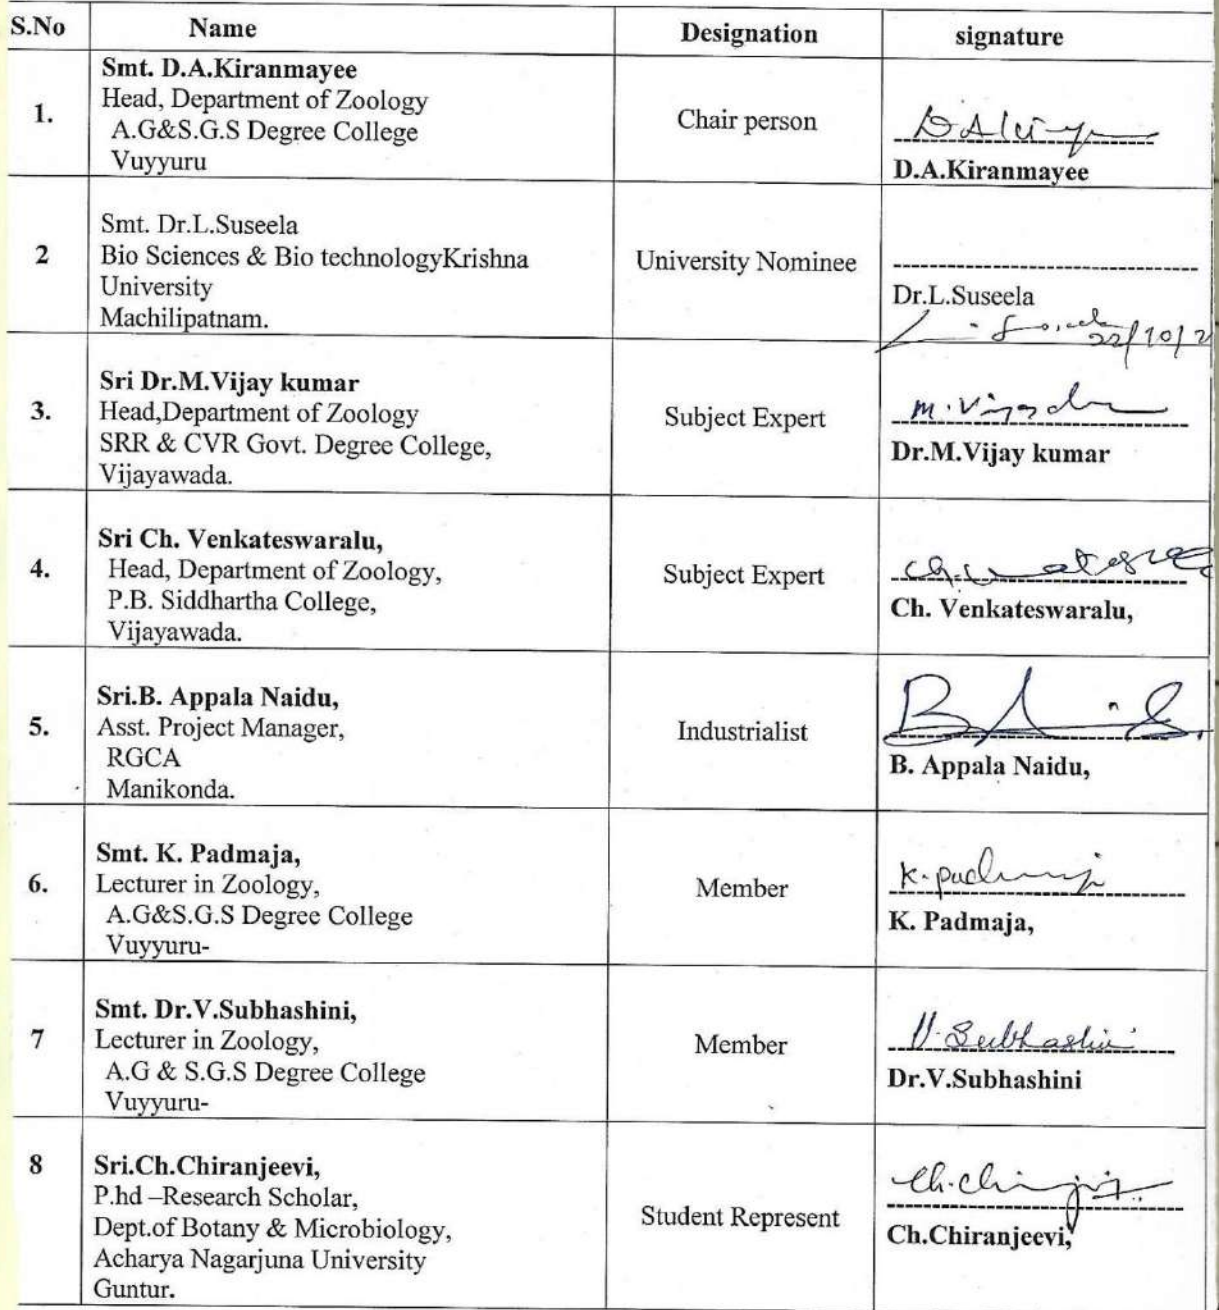 S.No Name Designation signature
1.
Smt. D.A.Kiranmayee
Head, Department of Zoology
A.G&S.G.S Degree College
Vuyyuru
Chair person
D.A.Kiranmayee
2
Smt. Dr.L.Suseela
Bio Sciences & Bio technologyKrishna
University
Machilipatnam.
University Nominee
Dr.L.Suseela
22/10/2
3.
Sri Dr.M.Vijay kumar
Head,Department of Zoology
SRR & CVR Govt. Degree College,
Vijayawada.
Subject Expert
Dr.M.Vijay kumar
4.
Sri Ch. Venkateswaralu,
Head, Department of Zoology,
P.B. Siddhartha College,
Vijayawada.
Subject Expert
Ch. Venkateswaralu,
5.
Sri.B. Appala Naidu,
Asst. Project Manager,
RGCA
Manikonda.
Industrialist
B. Appala Naidu,
6.
Smt. K. Padmaja,
Lecturer in Zoology,
A.G&S.G.S Degree College
Vuyyuru-
Member
K. Padmaja,
7
Smt. Dr.V.Subhashini,
Lecturer in Zoology,
A.G & S.G.S Degree College
Vuyyuru-
Member
V. Subhashini
Dr.V.Subhashini
8
Sri.Ch.Chiranjeevi,
P.hd –Research Scholar,
Dept.of Botany & Microbiology,
Acharya Nagarjuna University
Guntur.
Student Represent
Ch.Chiranjeevi,